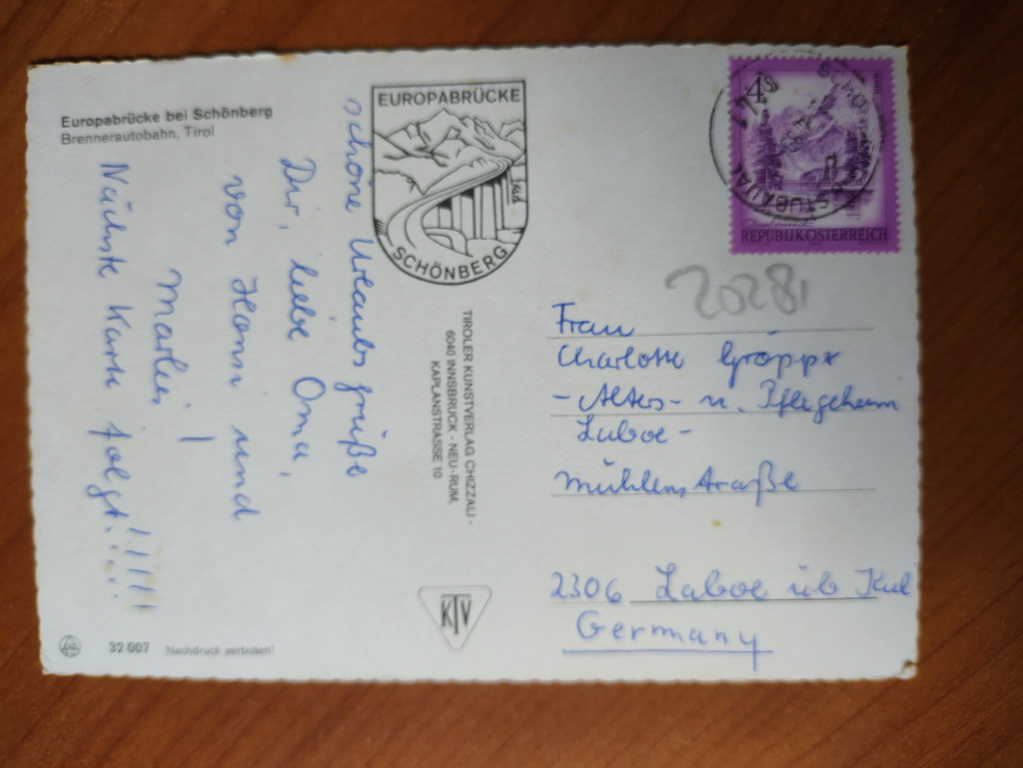 Europabrücke bei Schönberg
Brennerautobahn, Tirol
schöne Urlaubsgrüße
Dir, liebe Oma,
von Hanni und
Marlies!
Nächste Karte folgt.....!!!!!
EUROPABRÜCKE
SCHÖNBERG
TIROLER KUNSTVERLAG CHIZZALI -
6040 INNSBRUCK - NEU-RUM,
KAPLANSTRASSE 10
KTV
32 007 Nachdruck verboten!
4S
STUBAITAL
REPUBLIK ÖSTERREICH
20281
Frau
Charlotte
-Alters- u. Pflegeheim
Laboe-
Mühlenstraße
2306 Laboe üb Kiel
Germany